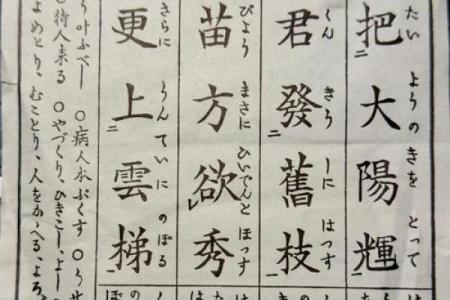 たいようのきを とって
把大陽輝
二 一
くん きうしに はつす
君發舊枝
二 一
びょう まさに ひいでんと ほっす
苗方欲秀
レ
さらに うんていに のぼる
更上雲梯
二 一
う叶ふべし ○病人本ぷくす ○うせ
○待人来る ○やづくり、ひきこし、よし
よめとり、むことり、人をかゝへる、よろ